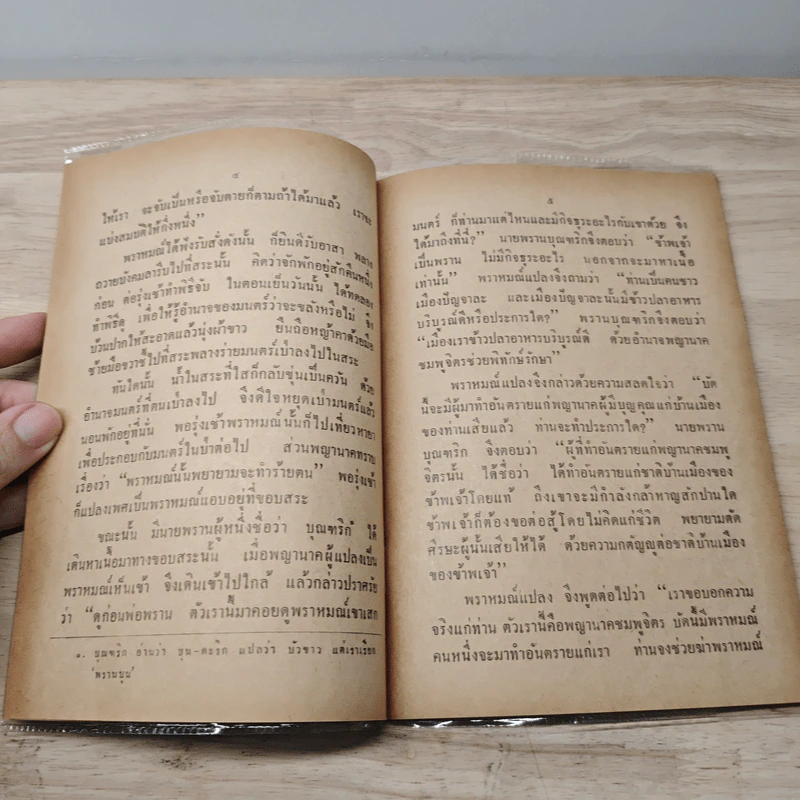 ๔
ให้เรา จะจับเป็นหรือจับตายก็ตามถ้าได้มาแล้ว เราจะ
แบ่งสมบัติให้กึ่งหนึ่ง”
พราหมณ์ได้ฟังรับสั่งดังนั้น ก็ยินดีรับอาสา พลาง
ถวายบังคมลารีบไปที่สระนั้น คิดว่าจักพักอยู่สักคืนหนึ่ง
ก่อน ต่อรุ่งเช้าทำพิธีจับ ในตอนเย็นวันนั้น ได้ทดลอง
ทำพิธีดู เพื่อให้รู้อำนาจของมนตร์ว่าจะขลังหรือไม่ จึง
บ้วนปากให้สะอาดแล้วนุ่งผ้าขาว ยืนถือหญ้าคาด้วยมือ
ซ้ายมือขวาชี้ไปที่สระพลางร่ายมนตร์เป่าลงไปในสระ
ทันใดนั้น น้ำในสระที่ใสก็กลับขุ่นเป็นควัน ด้วย
อำนาจมนตร์ที่ตนเป่าลงไป จึงดีใจหยุดเป่ามนตร์แล้ว
นอนพักอยู่ที่นั่น พอรุ่งเช้าพราหมณ์นั้นก็ไปเที่ยวหายา
เพื่อประกอบกับมนตร์ในป่าต่อไป ส่วนพญานาคทราบ
เรื่องว่า “พราหมณ์นั้นพยายามจะทำร้ายตน” พอรุ่งเช้า
ก็แปลงเพศเป็นพราหมณ์แอบอยู่ที่ขอบสระ
ขณะนั้น มีนายพรานผู้หนึ่งชื่อว่า บุณฑริก๑ ได้
เดินหาเนื้อมาทางขอบสระนั้น เมื่อพญานาคผู้แปลงเป็น
พราหมณ์เห็นเข้า จึงเดินเข้าไปใกล้ แล้วกล่าวปราศรัย
ว่า “ดูก่อนพ่อพราน ตัวเรานี้มาคอยดูพราหมณ์เขาเสก
๑. บุณฑริก อ่านว่า บุน-ดะริก แปลว่า บัวขาว แต่เราเรียก
‘พรานบุน’
๕
มนตร์ ก็ท่านมาแต่ไหนและมีกิจธุระอะไรกับเขาด้วย จึง
ได้มาถึงที่นี่?” นายพรานบุณฑริกจึงตอบว่า “ข้าพเจ้า
เป็นพราน ไม่มีกิจธุระอะไร นอกจากจะมาหาเนื้อ
เท่านั้น” พราหมณ์แปลงจึงถามว่า “ท่านเป็นคนชาว
เมืองปัญจาละ และเมืองปัญจาละนั้นมีข้าวปลาอาหาร
บริบูรณ์ดีหรือประการใด?” พรานบุณฑริกจึงตอบว่า
“เมืองเราข้าวปลาอาหารบริบูรณ์ดี ด้วยอำนาจพญานาค
ชมพูจิตรช่วยพิทักษ์รักษา”
พราหมณ์แปลงจึงกล่าวด้วยความสลดใจว่า “บัด
นี้จะมีผู้มาทำอันตรายแก่พญานาคผู้มีบุญคุณแก่บ้านเมือง
ของท่านเสียแล้ว ท่านจะทำประการใด?” นายพราน
บุณฑริก จึงตอบว่า “ผู้ที่ทำอันตรายแก่พญานาคชมพู
จิตรนั้น ได้ชื่อว่า ได้ทำอันตรายแก่ชาติบ้านเมืองของ
ข้าพเจ้าโดยแท้ ถึงเขาจะมีกำลังกล้าหาญสักปานใด
ข้าพเจ้าก็ต้องขอต่อสู้โดยไม่คิดแก่ชีวิต พยายามตัด
ศีรษะผู้นั้นเสียให้ได้ ด้วยความกตัญญูต่อชาติบ้านเมือง
ของข้าพเจ้า”
พราหมณ์แปลง จึงพูดต่อไปว่า “เราขอบอกความ
จริงแก่ท่าน ตัวเรานี้คือพญานาคชมพูจิตร บัดนี้มีพราหมณ์
คนหนึ่งจะมาทำอันตรายแก่เรา ท่านจงช่วยฆ่าพราหมณ์